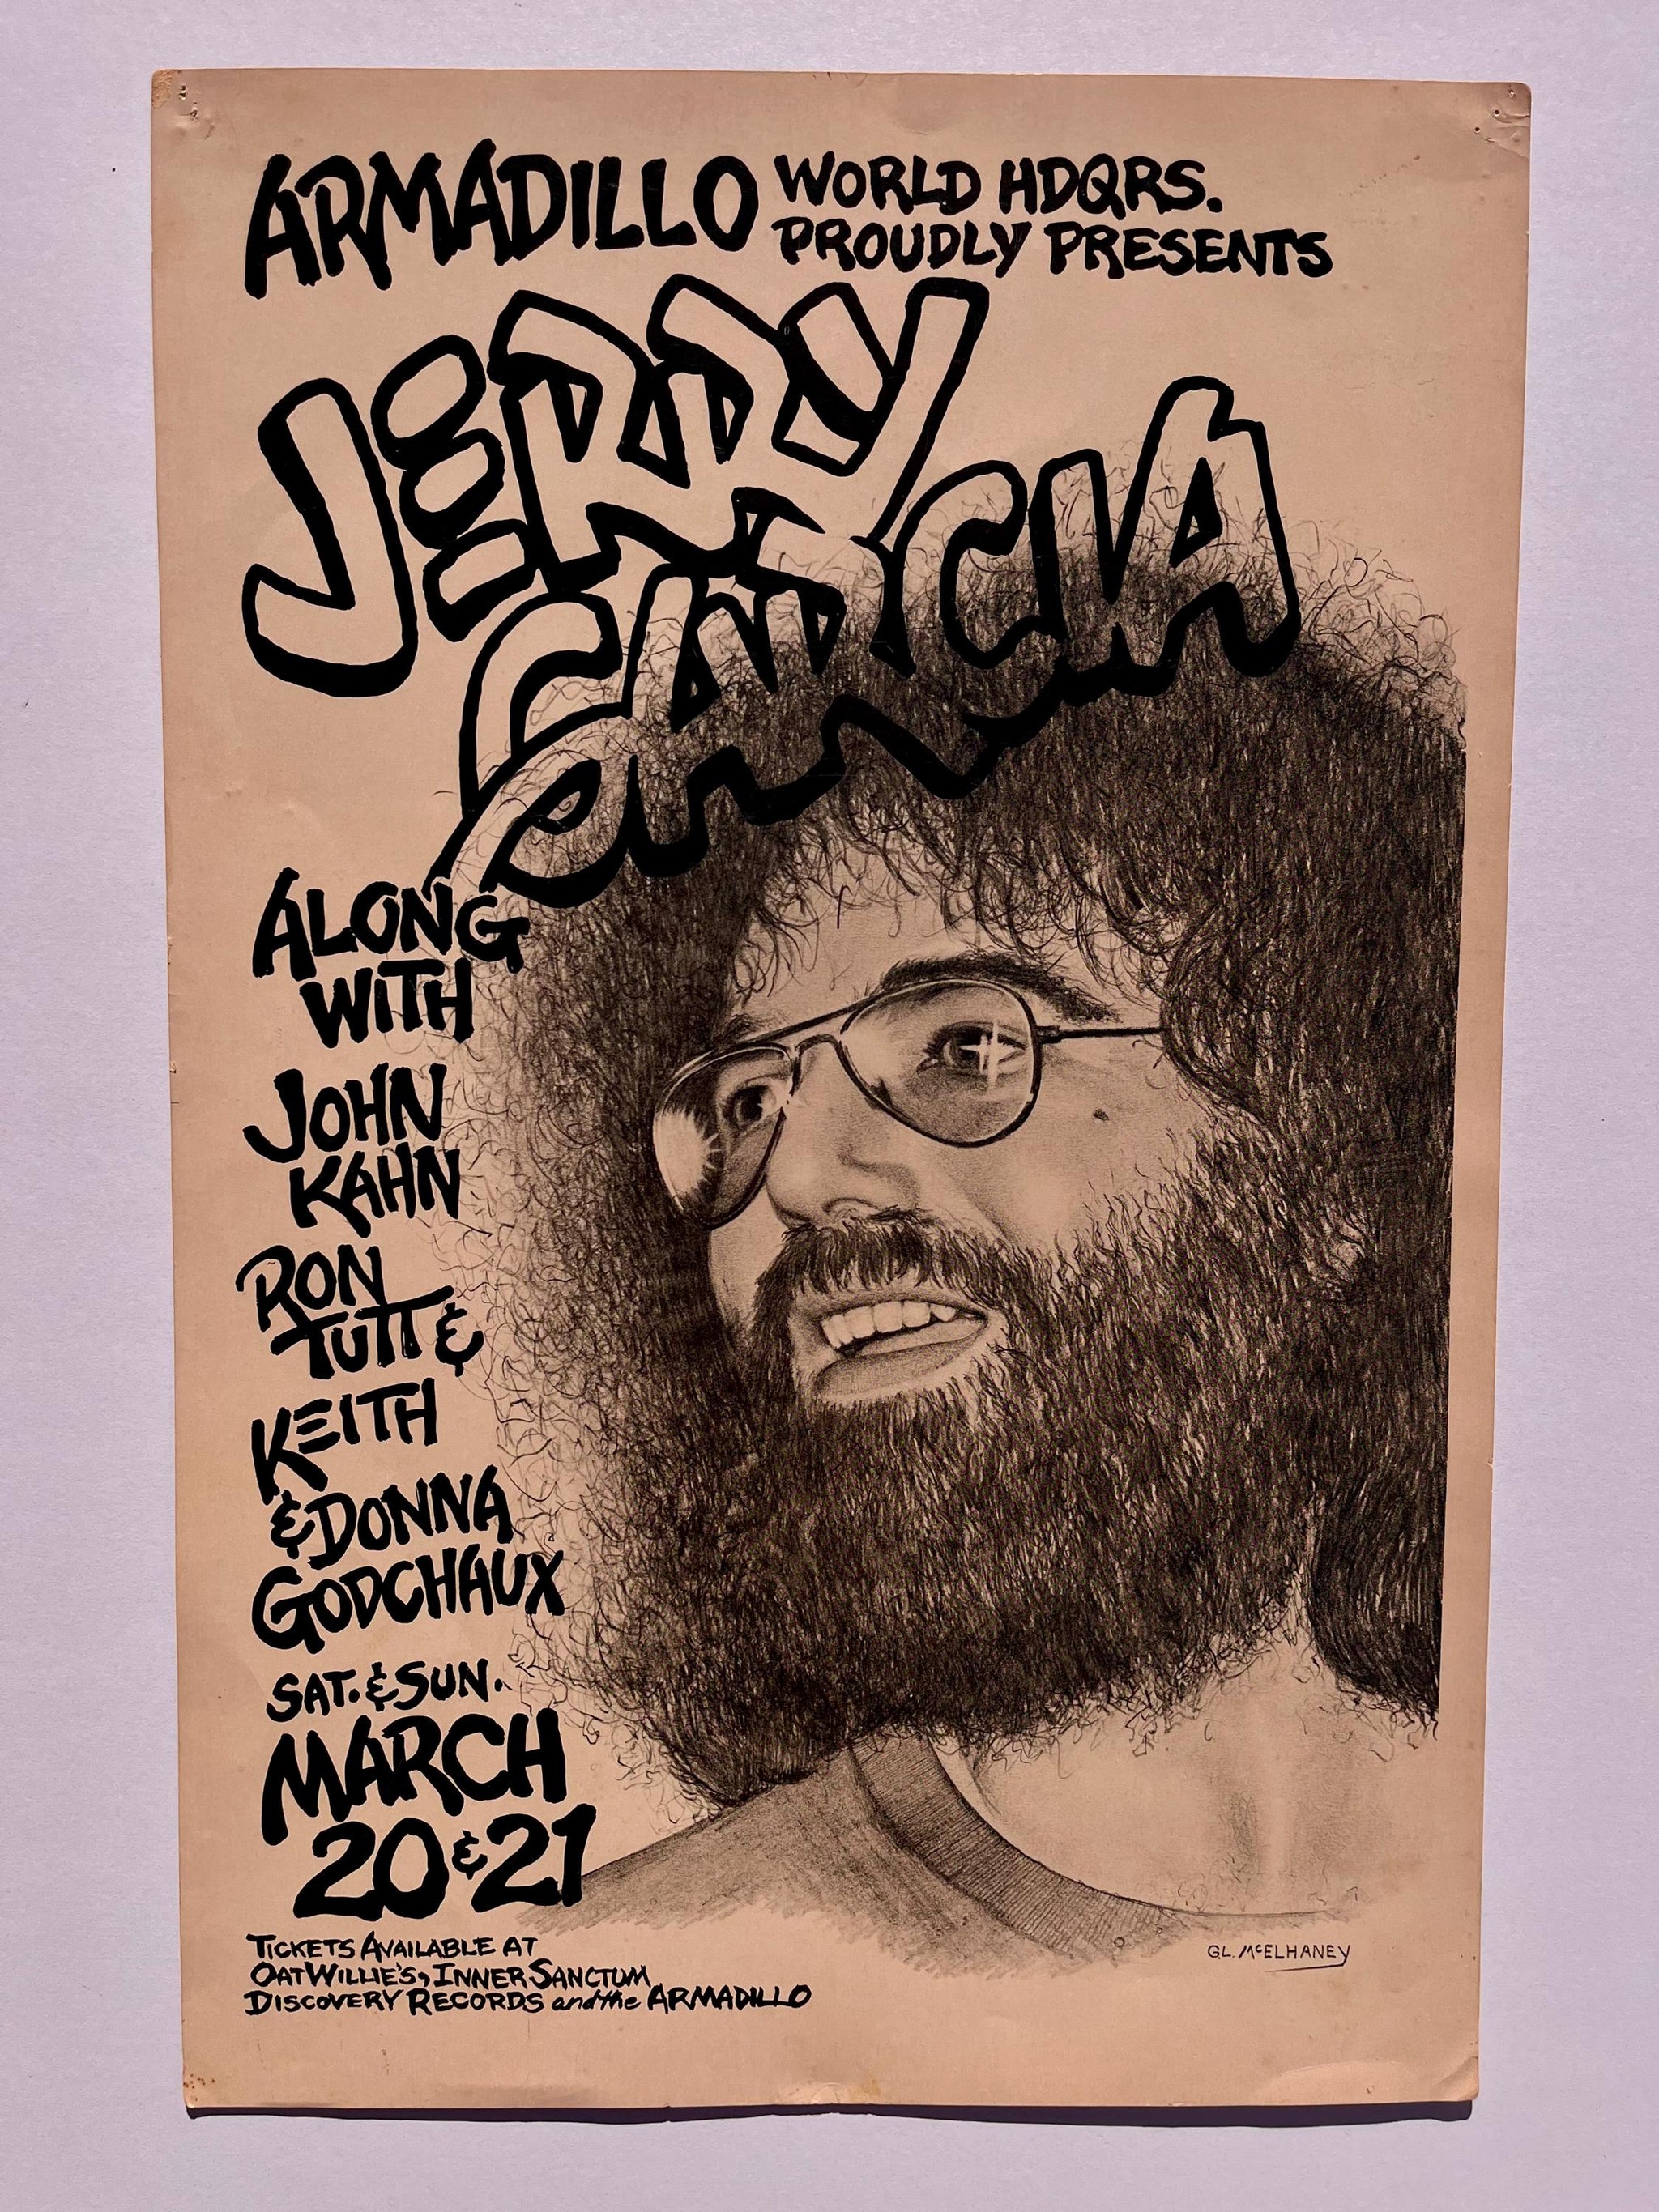 ARMADILLO WORLD HDQRS.
PROUDLY PRESENTS
JERRY
GARCIA
ALONG
WITH
JOHN
KAHN
RON
TUTT &
KEITH
& DONNA
GODCHAUX
SAT. & SUN.
MARCH
20 & 21
TICKETS AVAILABLE AT
OAT WILLIE'S, INNER SANCTUM
DISCOVERY RECORDS and the ARMADILLO
G.L. McELHANEY